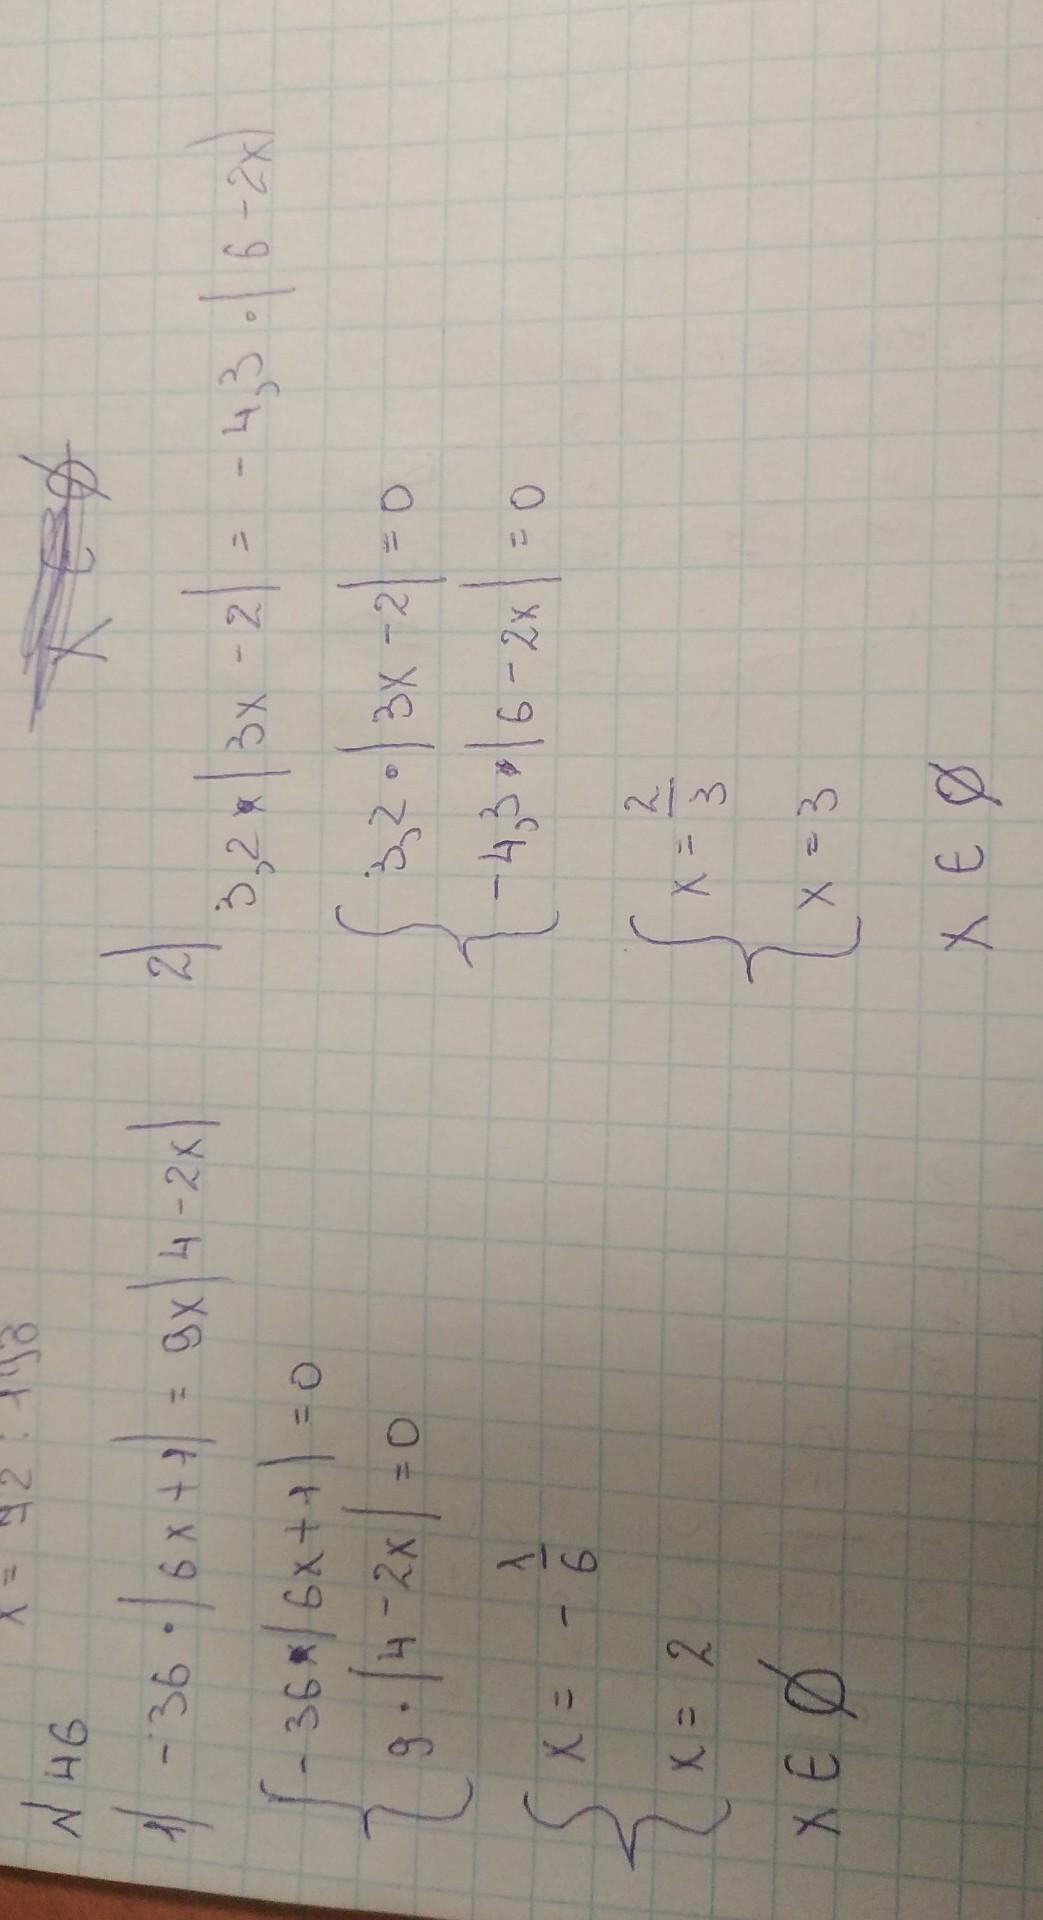 № 46
1) -36 · |6x+1| = 9x|4-2x|
{ -36 · |6x+1| = 0
9 · |4-2x| = 0
{ x = - 1/6
x = 2
x ∈ ∅
2)
3,2 · |3x-2| = -4,3 · |6-2x|
{ 3,2 · |3x-2| = 0
-4,3 · |6-2x| = 0
{ x = 2/3
x = 3
x ∈ ∅